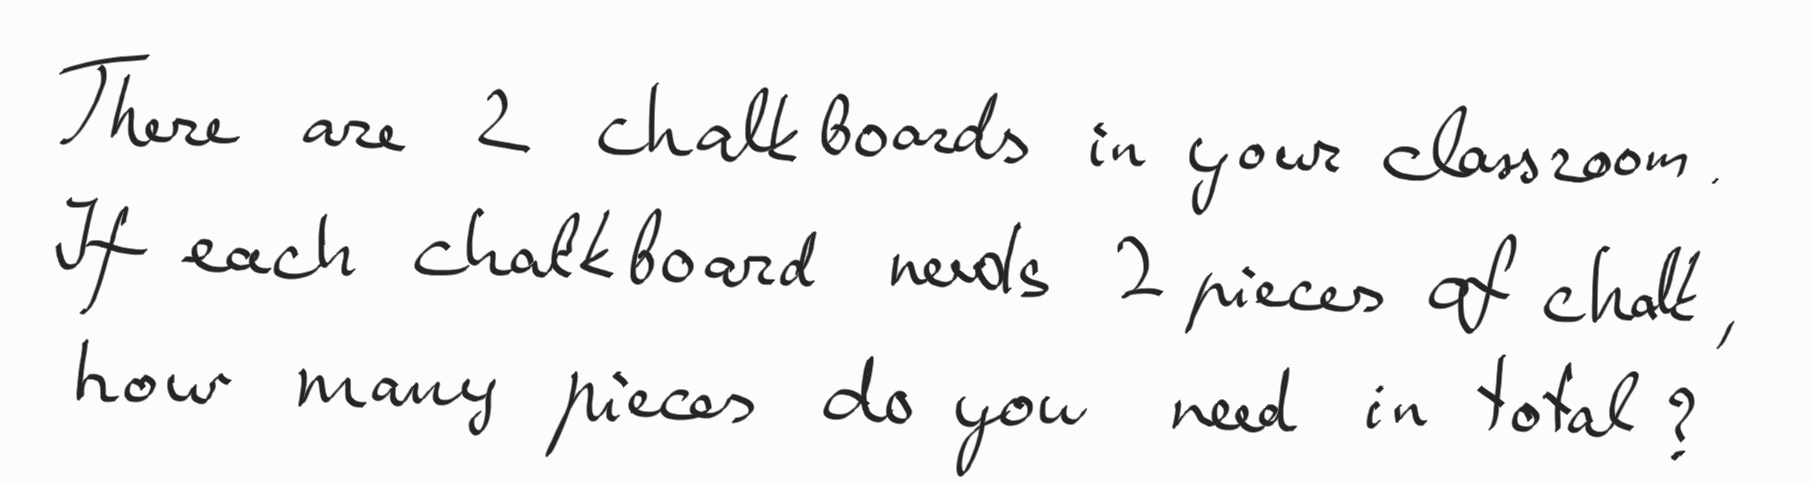 There are 2 chalkboards in your classroom.
If each chalkboard needs 2 pieces of chalk,
how many pieces do you need in total?